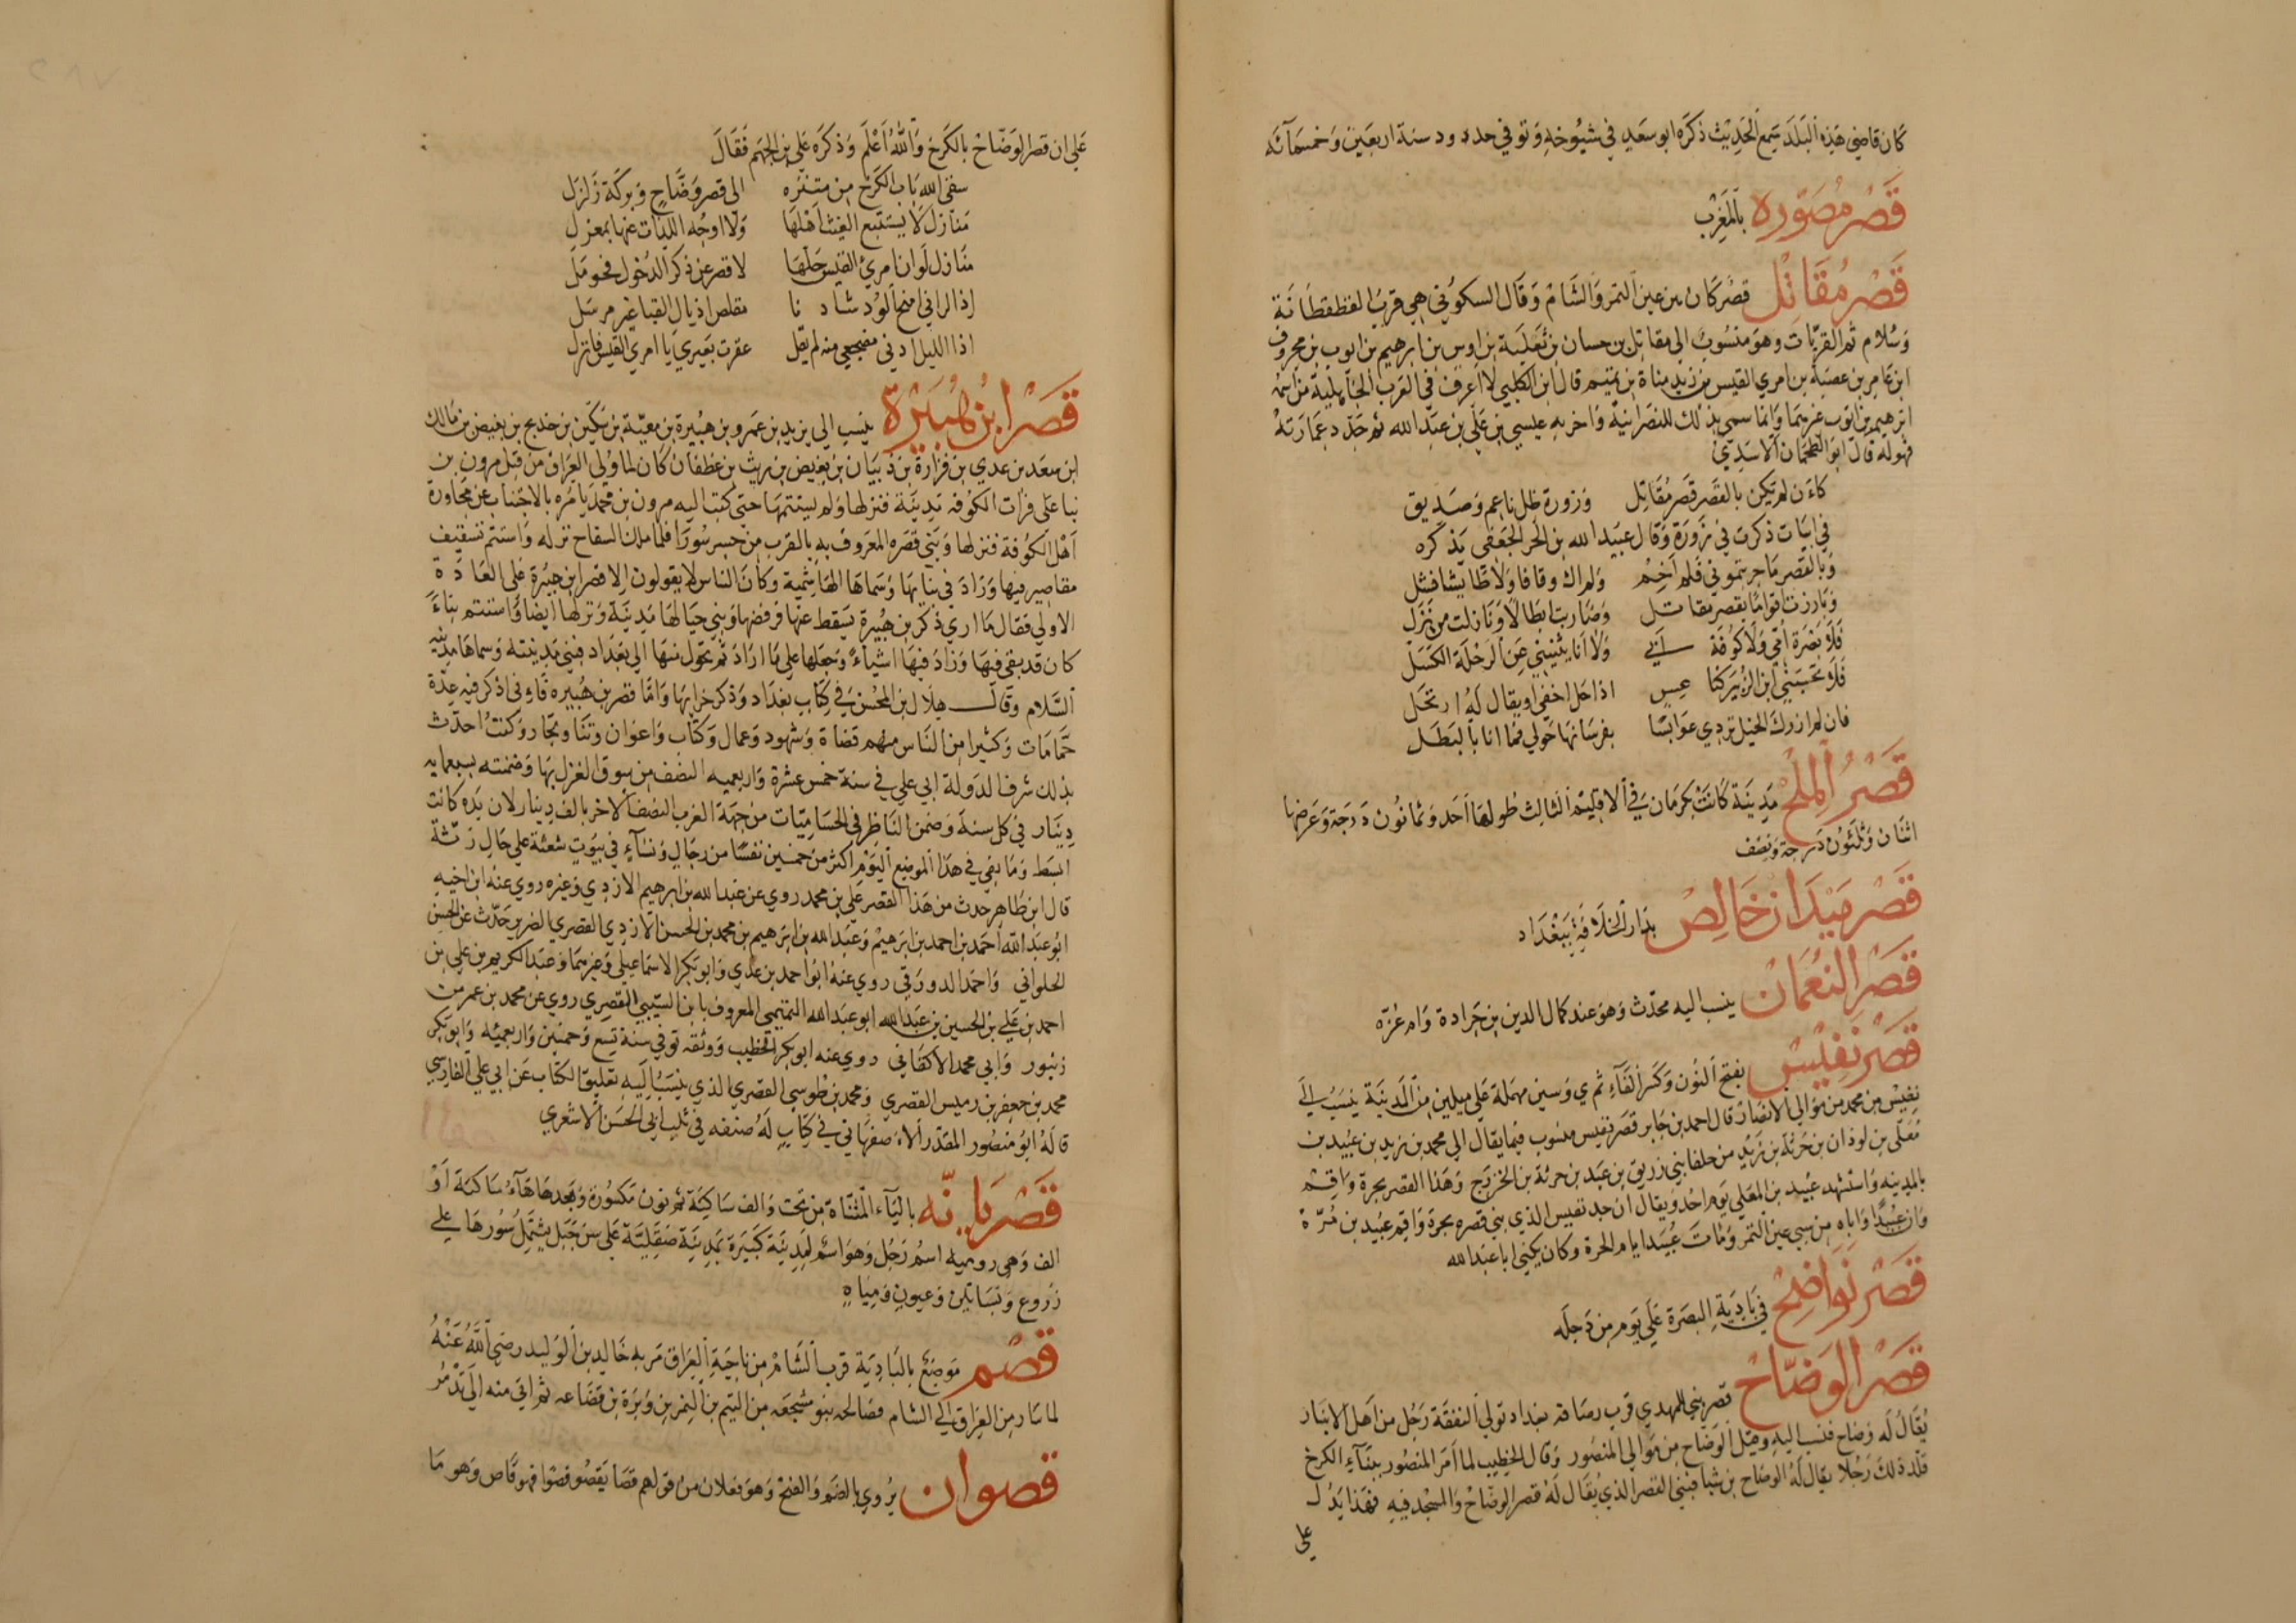 كان قاضي هذه البلد سمع الحديث ذكره ابو سعد في شيوخه وتوفي حدود سنة اربعين وخمسمائه
قصر مصوره بالمغرب
قصر مقاتل قصر كان بين عين التمر والشام وقال السكوني هي قرب القطقطانة
وسلام ثم القريات وهو منسوب الى مقاتل بن حسان بن ثعلبة بن اوس بن ابرهيم بن ايوب بن مجروف
ابن عامر بن عصية بن امري القيس بن زيد مناة بن تميم قال ابن الكلبي لا اعرف في العرب الجاهلية من اسمه
ابرهيم بن ايوب غيرهما وانما سمي بذلك للنصرانية واخربه عيسى بن علي بن عبد الله ثم جدد عمارته
فهو له قال ابو الطمحان الاسدي
كاءن لم يكن بالقصر قصر مقاتل وزورة ظل ناعم وصديق
في ابيات ذكرت في زورة وقال عبيد الله بن الحر الجعفي يذكره
وبالقصر ما جربتموني فلم اخم ولم اك وقافا ولا طايشا فشل
وبارزت اقواما بقصر مقاتل وضاربت ابطالا ونازلت من نزل
فلا بصرة امي ولا كوفة ابي ولا انا يثنيني عن الرحلة الكسل
فلا تحسبني ابن الزبير كناعس اذا حل اغفى او يقال له ارتحل
فان لم ازرك الخيل تردي عوابسا بفرسانها حولي فما انا بالبطل
قصر الملح مدينة كانت بكرمان في الاقليم الثالث طولها احد وثمانون درجة وعرضها
اثنان وثلثون درجة ونصف
قصر ميدان خالص بدار الخلافة ببغداد
قصر النعمان ينسب اليه محدث وهو عند كمال الدين بن جرادة وام عزه
قصر نفيس بفتح النون وكسر الفاء ثم ي وسين مهملة على ميلين من المدينة ينسب الى
نفيس بن محمد من موالي الانصار قال احمد بن جابر قصر نفيس منسوب فيما يقال الى محمد بن زيد بن عبيد بن
معلى بن لوذان بن حرثة بن زيد من حلفا بني زريق بن عبد بن حرثة بن الخزرج وهذا القصر بحرة واقم
بالمدينه واستشهد عبيد بن المعلى يوم احد ويقال ان جد نفيس الذي بني قصره بحرة واقم عبيد بن مرة
وان عبيدا واباه من سبي عين التمر ومات عبيد ايام الحرة وكان يكنى ابا عبد الله
قصر نواضح في بادية البصرة على يوم من دجله
قصر الوضاح قصر بني للمهدي قرب رصافه بغداد تولي النفقة رجل من اهل الانبار
يقال له وضاح فنسب اليه وقيل الوضاح من موالي المنصور وقال الخطيب لما امر المنصور ببناء الكرخ
قلد ذلك رجلا يقال له الوضاح بن شبا فبنى القصر الذي يقال له قصر الوضاح والمسجد فيه فهذا يدل
على
على ان قصر الوضاح بالكرخ والله اعلم وذكره علي بن الجهم فقال
سقى الله باب الكرخ من متنزه الى قصر وضاح وبركة زلزل
منازل لا يستتبع الغيث اهلها ولا اوجه اللذات عنها بمعزل
منازل لو ان امرئ القيس حلها لاقصر عن ذكر الدخول فحومل
اذا لراني امنح الود شادنا مقلص اذيال القبا غير مرسل
اذا الليل ادنى مضجعي منه لم يقل عقرت بعيري يا امري القيس فانزل
قصر ابن هبيرة ينسب الى يزيد بن عمرو بن هبيرة بن معية بن سكين بن خديج بن بغيض بن مالك
ابن سعد بن عدي بن فزارة بن ذبيان بن بغيض بن ريث بن غطفان كان لما ولي العراق من قبل مرون بن
بنا على فرات الكوفه مدينة فنزلها ولم يستتمها حتى كتب اليه مرون بن محمد يامره بالاجتناب عن مجاورة
اهل الكوفة فنزلها وبني قصره المعروف به بالقرب من جسر سورا فلما ملك السفاح نزله واستتم تسقيف
مقاصير فيها وزاد في بنايها وسماها الهاشمية وكان الناس لا يقولون الا قصر ابن هبيرة على العادة
الاولي فقال ما ارى ذكر بن هبيرة يسقط عنها فرفضها وبني حيالها مدينة ونزلها ايضا واستتم بناء
كان قد بقي فيها وزاد فيها اشياء وجعلها على ما اراد ثم تحول منها الى بغداد فبنى مدينته وسماها مدينه
السلام وقال هلال بن المحسن في كتاب بغداد وذكر خرابها واما قصر بن هبيره فاءني اذكر فيه عدة
حمامات وكثيرا من الناس منهم قضاة وشهود وعمال وكتاب واعوان وتنا وتجار وكنت احدث
بذلك شرف الدولة ابي علي في سنة خمس عشرة واربعميه النصف من سوق الغزل بها وضمنته بسبعمايه
دينار في كل سنة وضمن الناظر في الحساميات من جهة الغرب النصف الاخر بالف دينار لان يده كانت
ابسط وما بقي في هذا الموضع اليوم اكثر من خمسين نفسا من رجال ونساء في بيوت شعثة على حال رثة
قال ابن طاهر حدث من هذا القصر علي بن محمد روى عن عبد الله بن ابرهيم الازدي وغيره روى عنه ابن اخيه
ابو عبد الله احمد بن احمد بن ابرهيم وعبد الله بن ابرهيم بن محمد بن الحسن الازدي القصري الضرير حدث عن الحسن
الحلواني واحمد الدورقي روى عنه ابو احمد بن عدي وابو بكر الاسماعيلي وغيرهما وعبد الكريم بن علي بن
احمد بن علي بن الحسين بن عبد الله ابو عبد الله التميمي المعروف بابن السيبي القصري روى عن محمد بن عمر من
زنبور وابي محمد الاكفاني روى عنه ابو بكر الخطيب ووثقه توفي سنة تسع وخمسين واربعميه وابو بكر
محمد بن جعفر بن رميس القصري ومحمد بن طوسي القصري الذي ينسب اليه تعليق الكتاب عن ابي علي الفارسي
قاله ابو منصور المقدر الاصفهاني في كتاب له صنفه في ثلب ابي الحسن الاشعري
قصر يانه بالياء المثناة من تحت والف ساكنة ثم نون مكسورة وبعدها هاء ساكنة او
الف وهي روميه اسم رجل وهو اسم لمدينة كبيرة بمدينة صقلية على سن جبل يشتمل سورها على
زروع وبساتين وعيون ومياه
قصم موضع بالبادية قرب الشام من ناحية العراق مر به خالد بن الوليد رضي الله عنه
لما سار من العراق الى الشام فصالحه بنو مشجعه من التيم بن النمر بن وبرة بن قضاعه ثم اتى منه الى تدمر
قصوان يروى بالضم والفتح وهو فعلان من قولهم قصا يقصو قصوا فهو قاص وهو ما